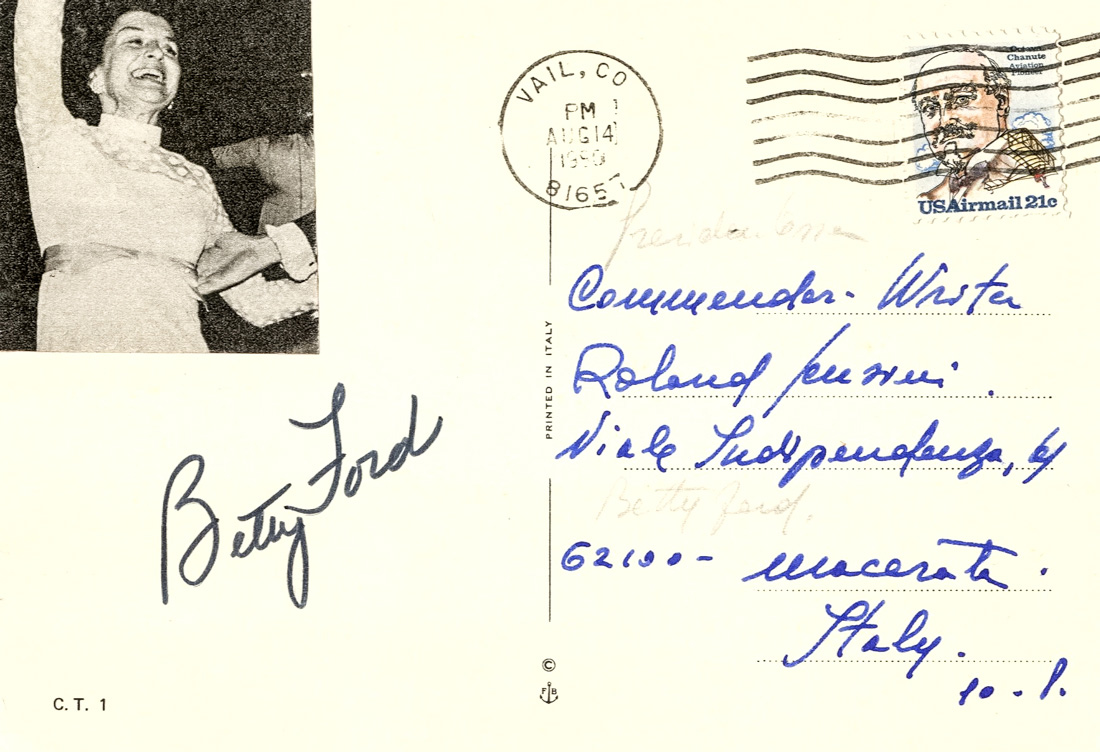 VAIL, CO
PM
AUG 14
1980
81657
Octave
Chanute
Aviation
Pioneer
USAirmail 21c
Commender - Writer
Roland
Viale Indipendenza, 64
Betty Ford.
62100 - Macerata.
Italy.
PRINTED IN ITALY
Betty Ford
©
FB
C. T. 1